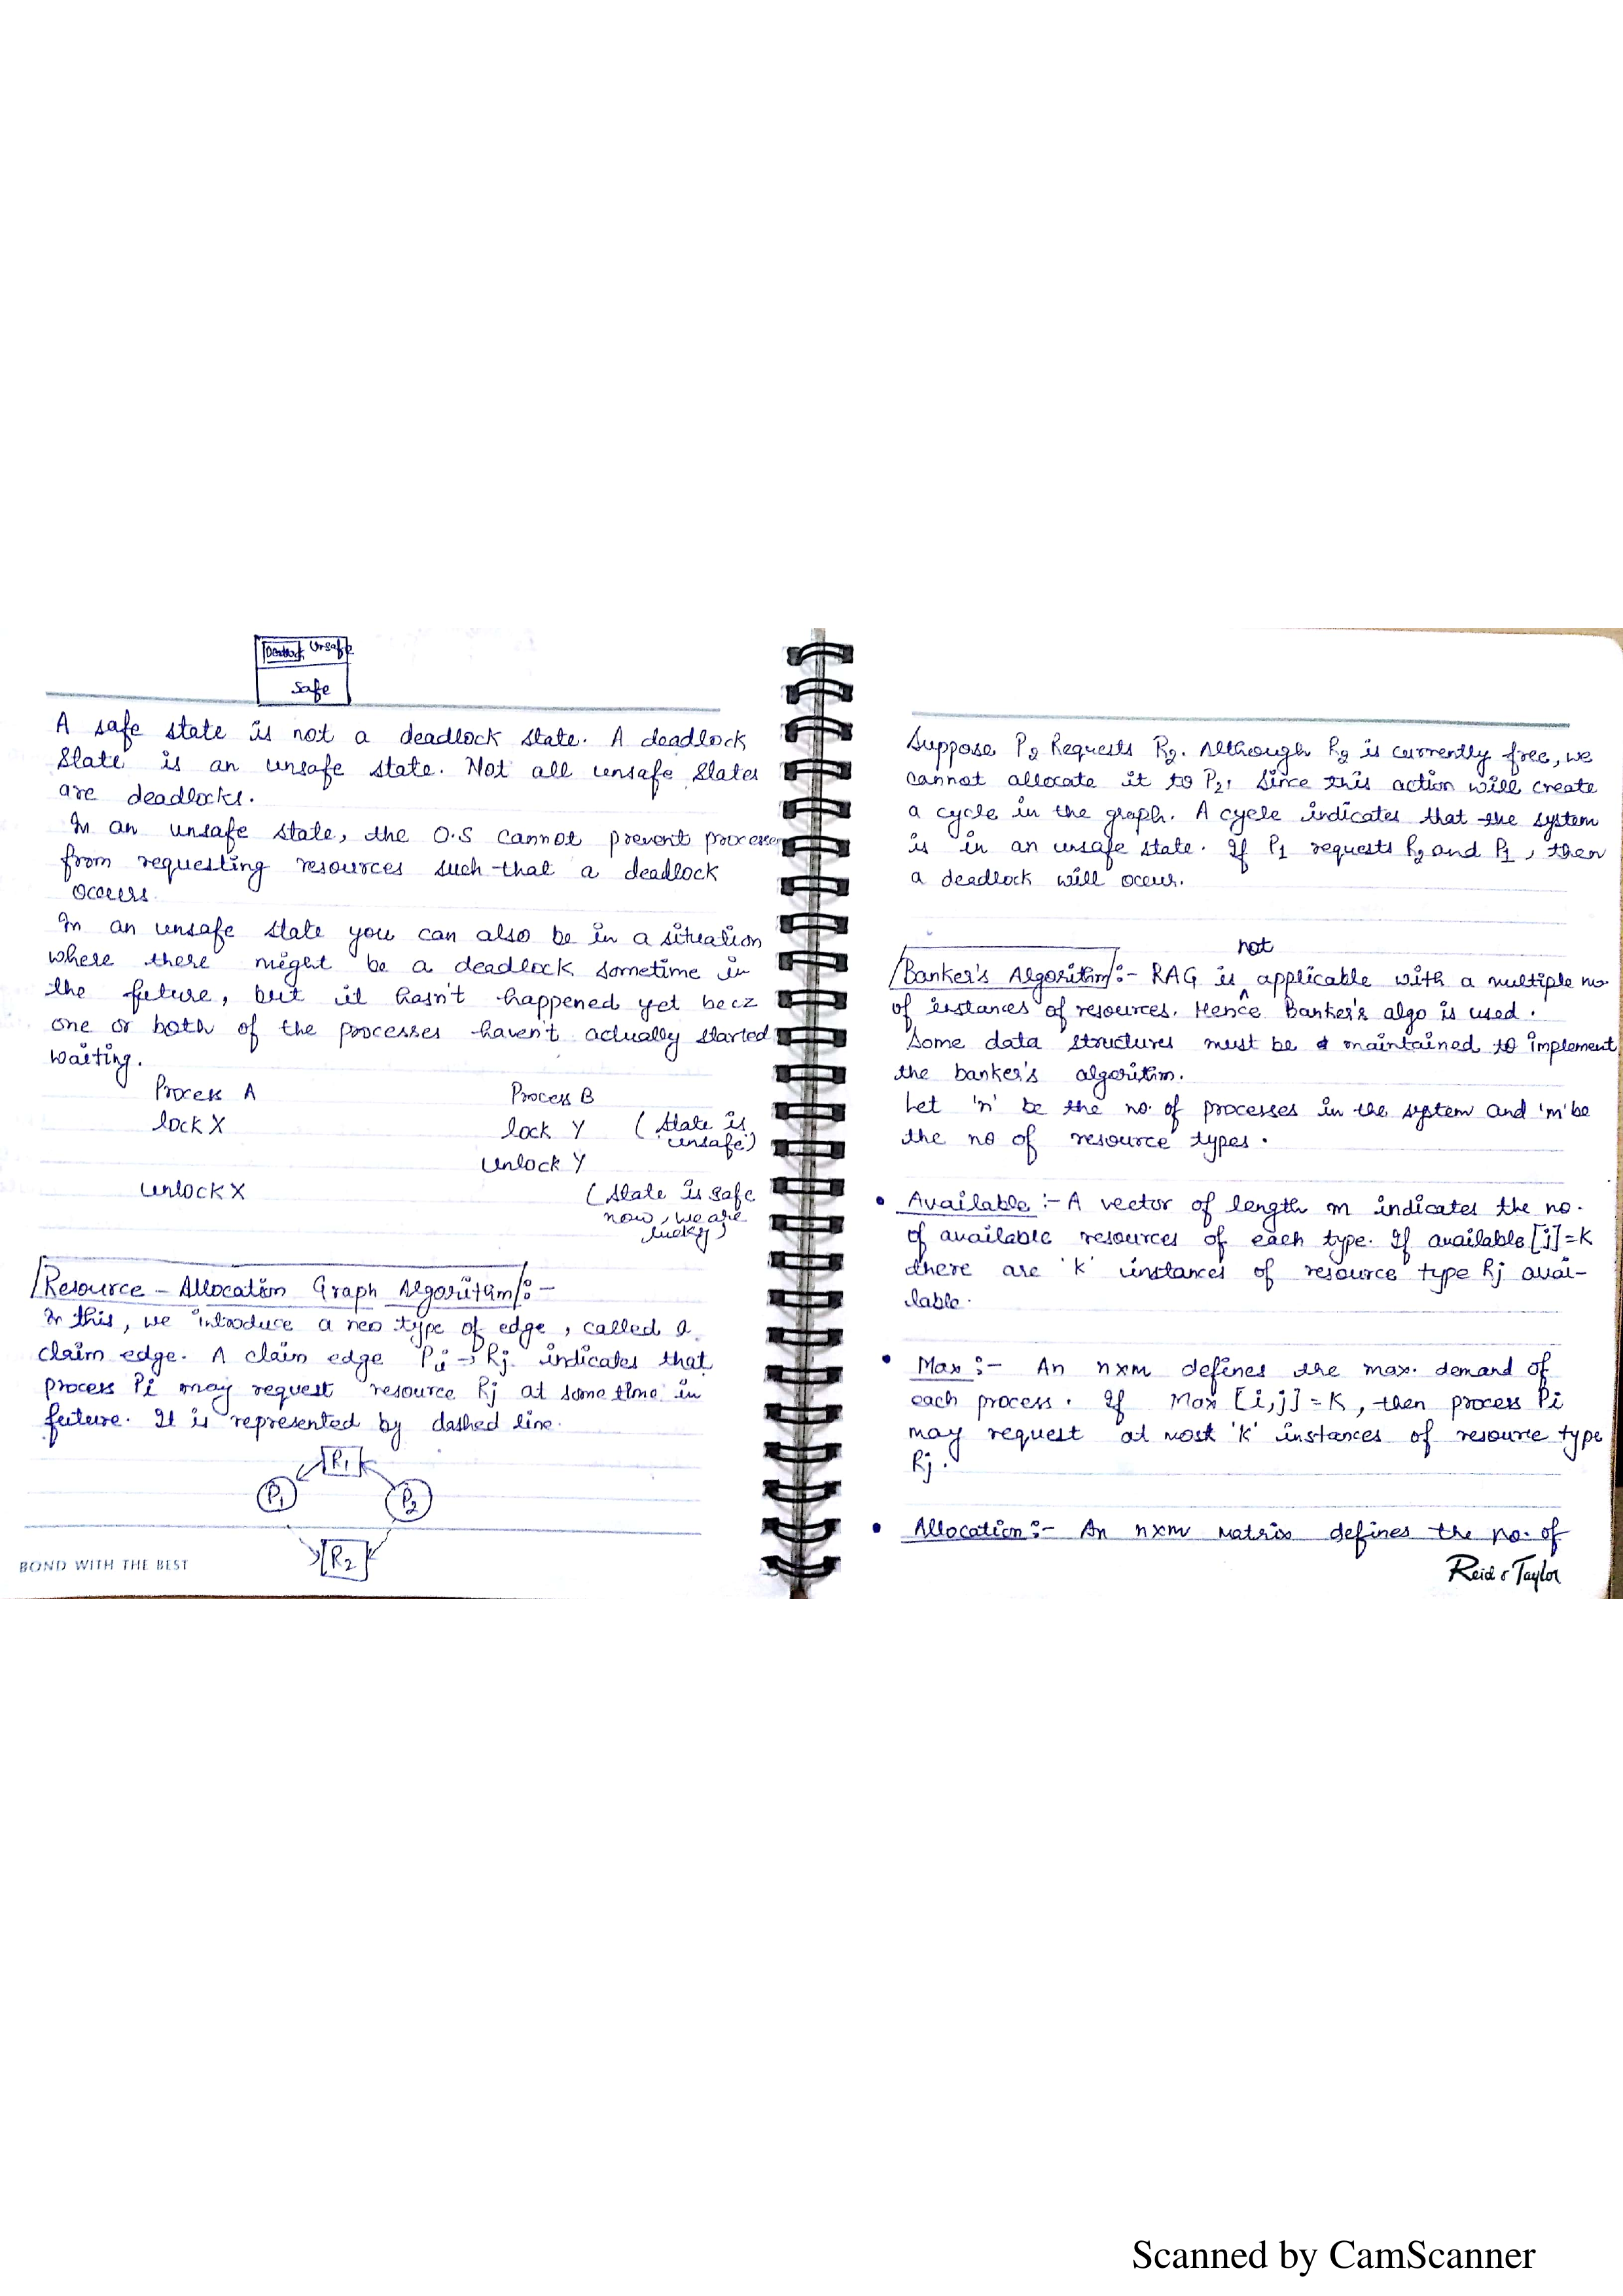 Deadlock Unsafe
Safe
A safe state is not a deadlock state. A deadlock
State is an unsafe state. Not all unsafe States
are deadlocks.
In an unsafe state, the O.S cannot prevent processes
from requesting resources such that a deadlock
occurs.
In an unsafe state you can also be in a situation
where there might be a deadlock sometime in
the future, but it hasn't happened yet becz
one or both of the processes haven't actually started
waiting.
Process A Process B
lock X lock Y (State is
unsafe)
unlock Y
unlock X (State is safe
now, we are
lucky)
Resource - Allocation Graph Algorithm :-
In this, we introduce a new type of edge, called a
claim edge. A claim edge Pi → Rj indicates that
process Pi may request resource Rj at some time in
future. It is represented by dashed line.
R1
P1 P2
R2
BOND WITH THE BEST
Suppose P2 Requests R2. Although R2 is currently free, we
cannot allocate it to P2, since this action will create
a cycle in the graph. A cycle indicates that the system
is in an unsafe state. If P1 requests R2 and P1, then
a deadlock will occur.
not
Banker's Algorithm :- RAG is ^ applicable with a multiple no.
of instances of resources. Hence Banker's algo is used.
Some data structures must be maintained to implement
the banker's algorithm.
Let 'n' be the no. of processes in the system and 'm' be
the no of resource types.
• Available :- A vector of length m indicates the no.
of available resources of each type. If available [j]=K
there are 'K' instances of resource type Rj avai-
lable.
• Max :- An nxm defines the max. demand of
each process. If Max [i,j] = K, then process Pi
may request at most 'K' instances of resource type
Rj.
• Allocation :- An nxm matrix defines the no. of
Reid & Taylor
Scanned by CamScanner